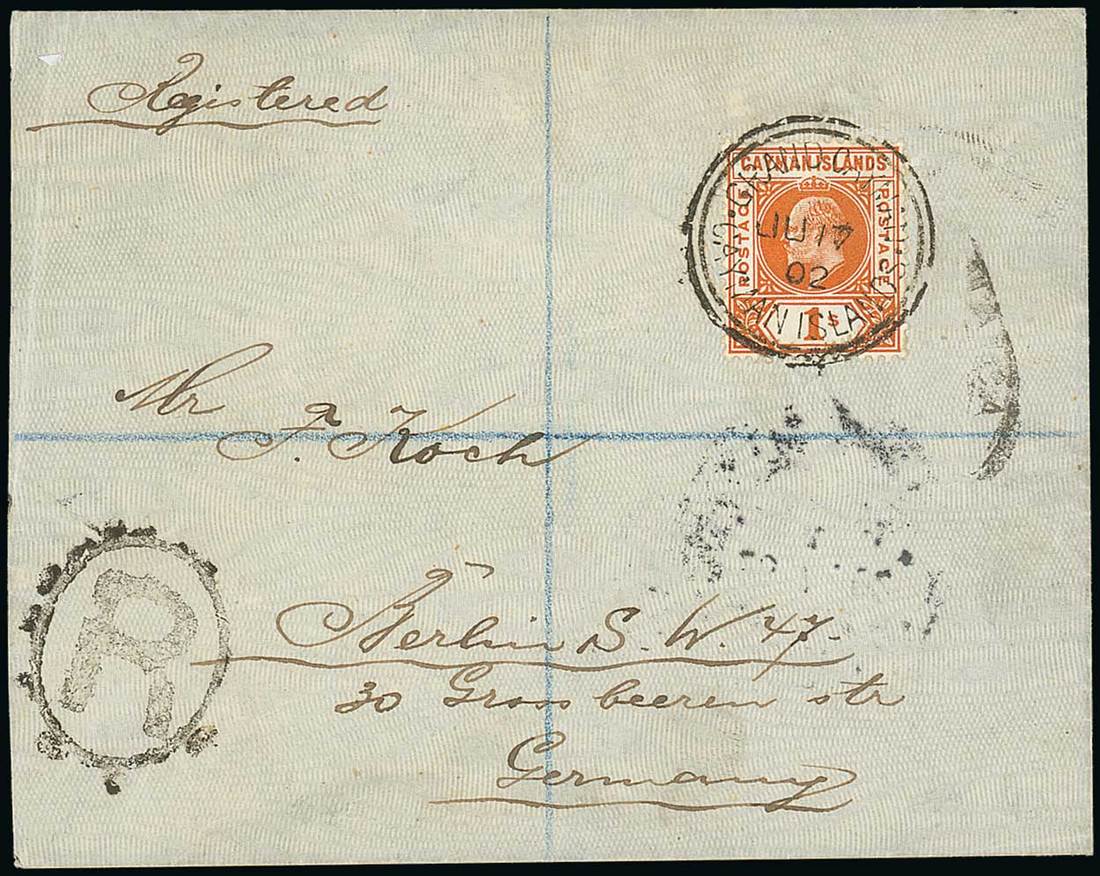 Registered
CAYMAN ISLANDS
POSTAGE
POSTAGE
1s
GRAND CAYMAN
CAYMAN ISLANDS
JU 17
02
Mr
F. Koch
R
Berlin S. W. 47.
30 Grossbeeren str
Germany